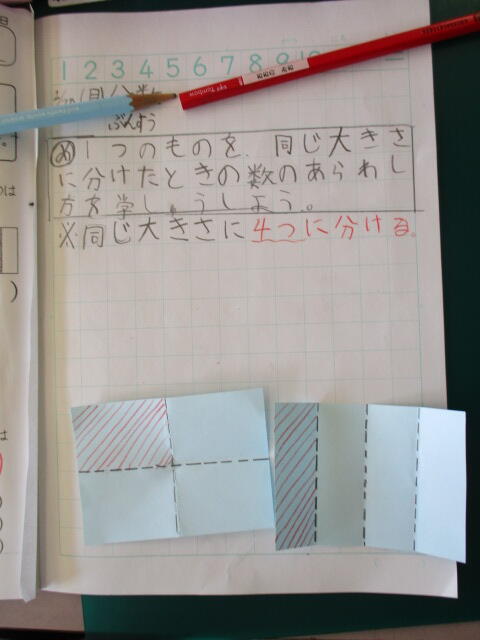 1 2 3 4 5 6 7 8 9
ぶんすう
め 1つのものを、同じ大きさ
に分けたときの数のあらわし
方を学しゅうしよう。
※同じ大きさに4つに分ける。